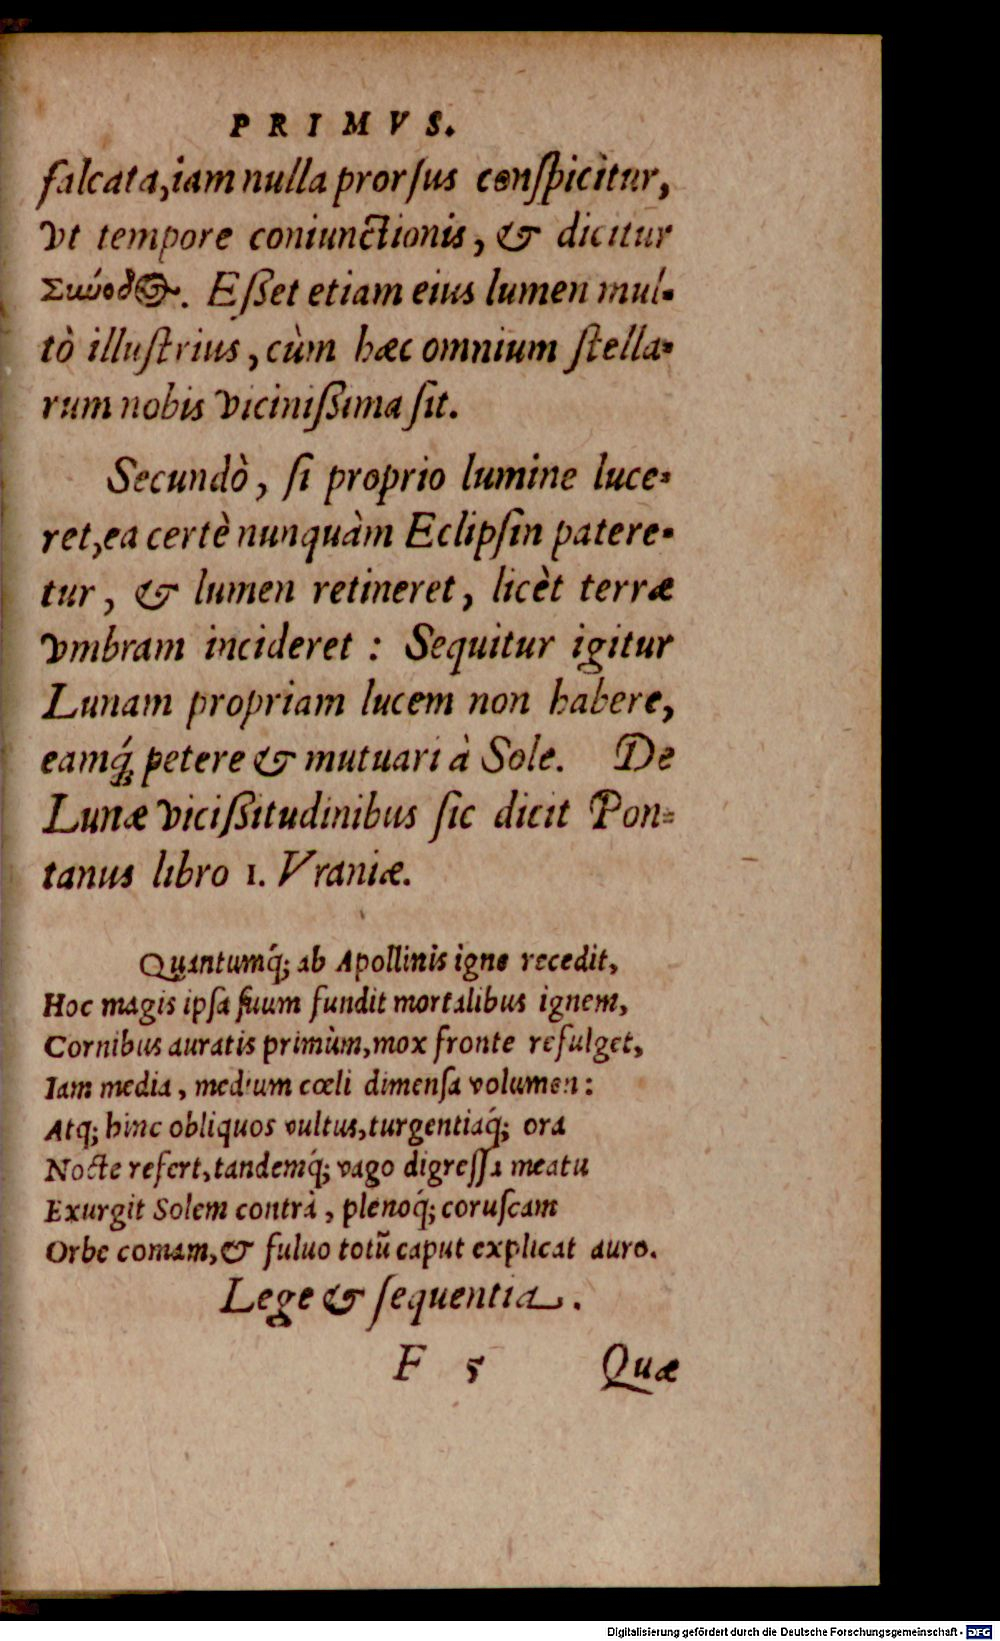 PRIMVS.
falcata, iam nulla prorſus conſpicitur,
vt tempore coniunctionis, & dicitur
Σύνοδος. Eßet etiam eius lumen mul-
tò illuſtrius, cùm hæc omnium ſtella-
rum nobis vicinißima ſit.
Secundò, ſi proprio lumine luce-
ret, ea certè nunquàm Eclipſin patere-
tur, & lumen retineret, licèt terræ
vmbram incideret : Sequitur igitur
Lunam propriam lucem non habere,
eamq́; petere & mutuari à Sole. De
Lunæ vicißitudinibus ſic dicit Pon-
tanus libro 1. Vraniæ.
Quantumq́; ab Apollinis igne recedit,
Hoc magis ipſa ſuum fundit mortalibus ignem,
Cornibus auratis primùm, mox fronte refulget,
Iam media, medium cœli dimenſa volumen:
Atq; hinc obliquos vultus, turgentiaq́; ora
Nocte refert, tandemq́; vago digreſſa meatu
Exurgit Solem contrà, plenoq́; coruſcam
Orbe comam, & fuluo totũ caput explicat auro.
Lege & ſequentia.
F 5 Quæ
Digitalisierung gefördert durch die Deutsche Forschungsgemeinschaft - DFG